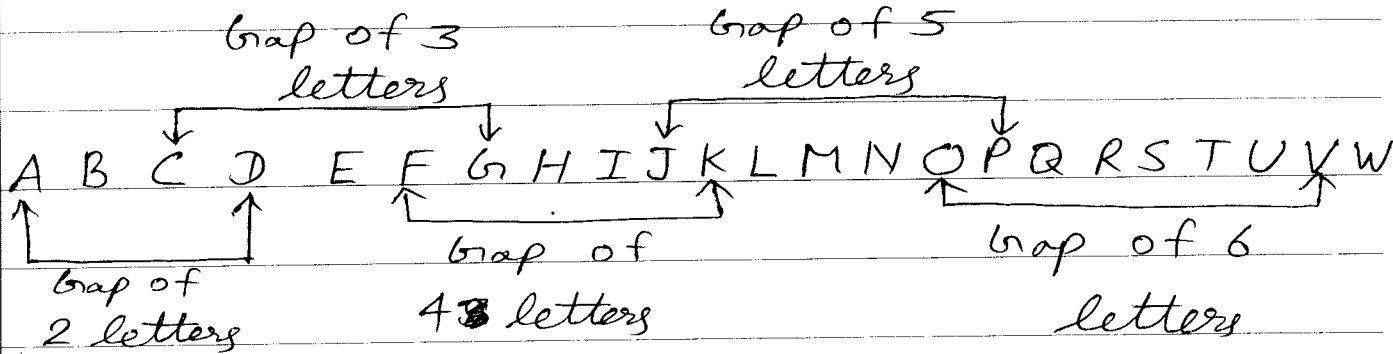 Gap of 3 letters
Gap of 5 letters
A B C D E F G H I J K L M N O P Q R S T U V W
Gap of 2 letters
Gap of 4 letters
Gap of 6 letters